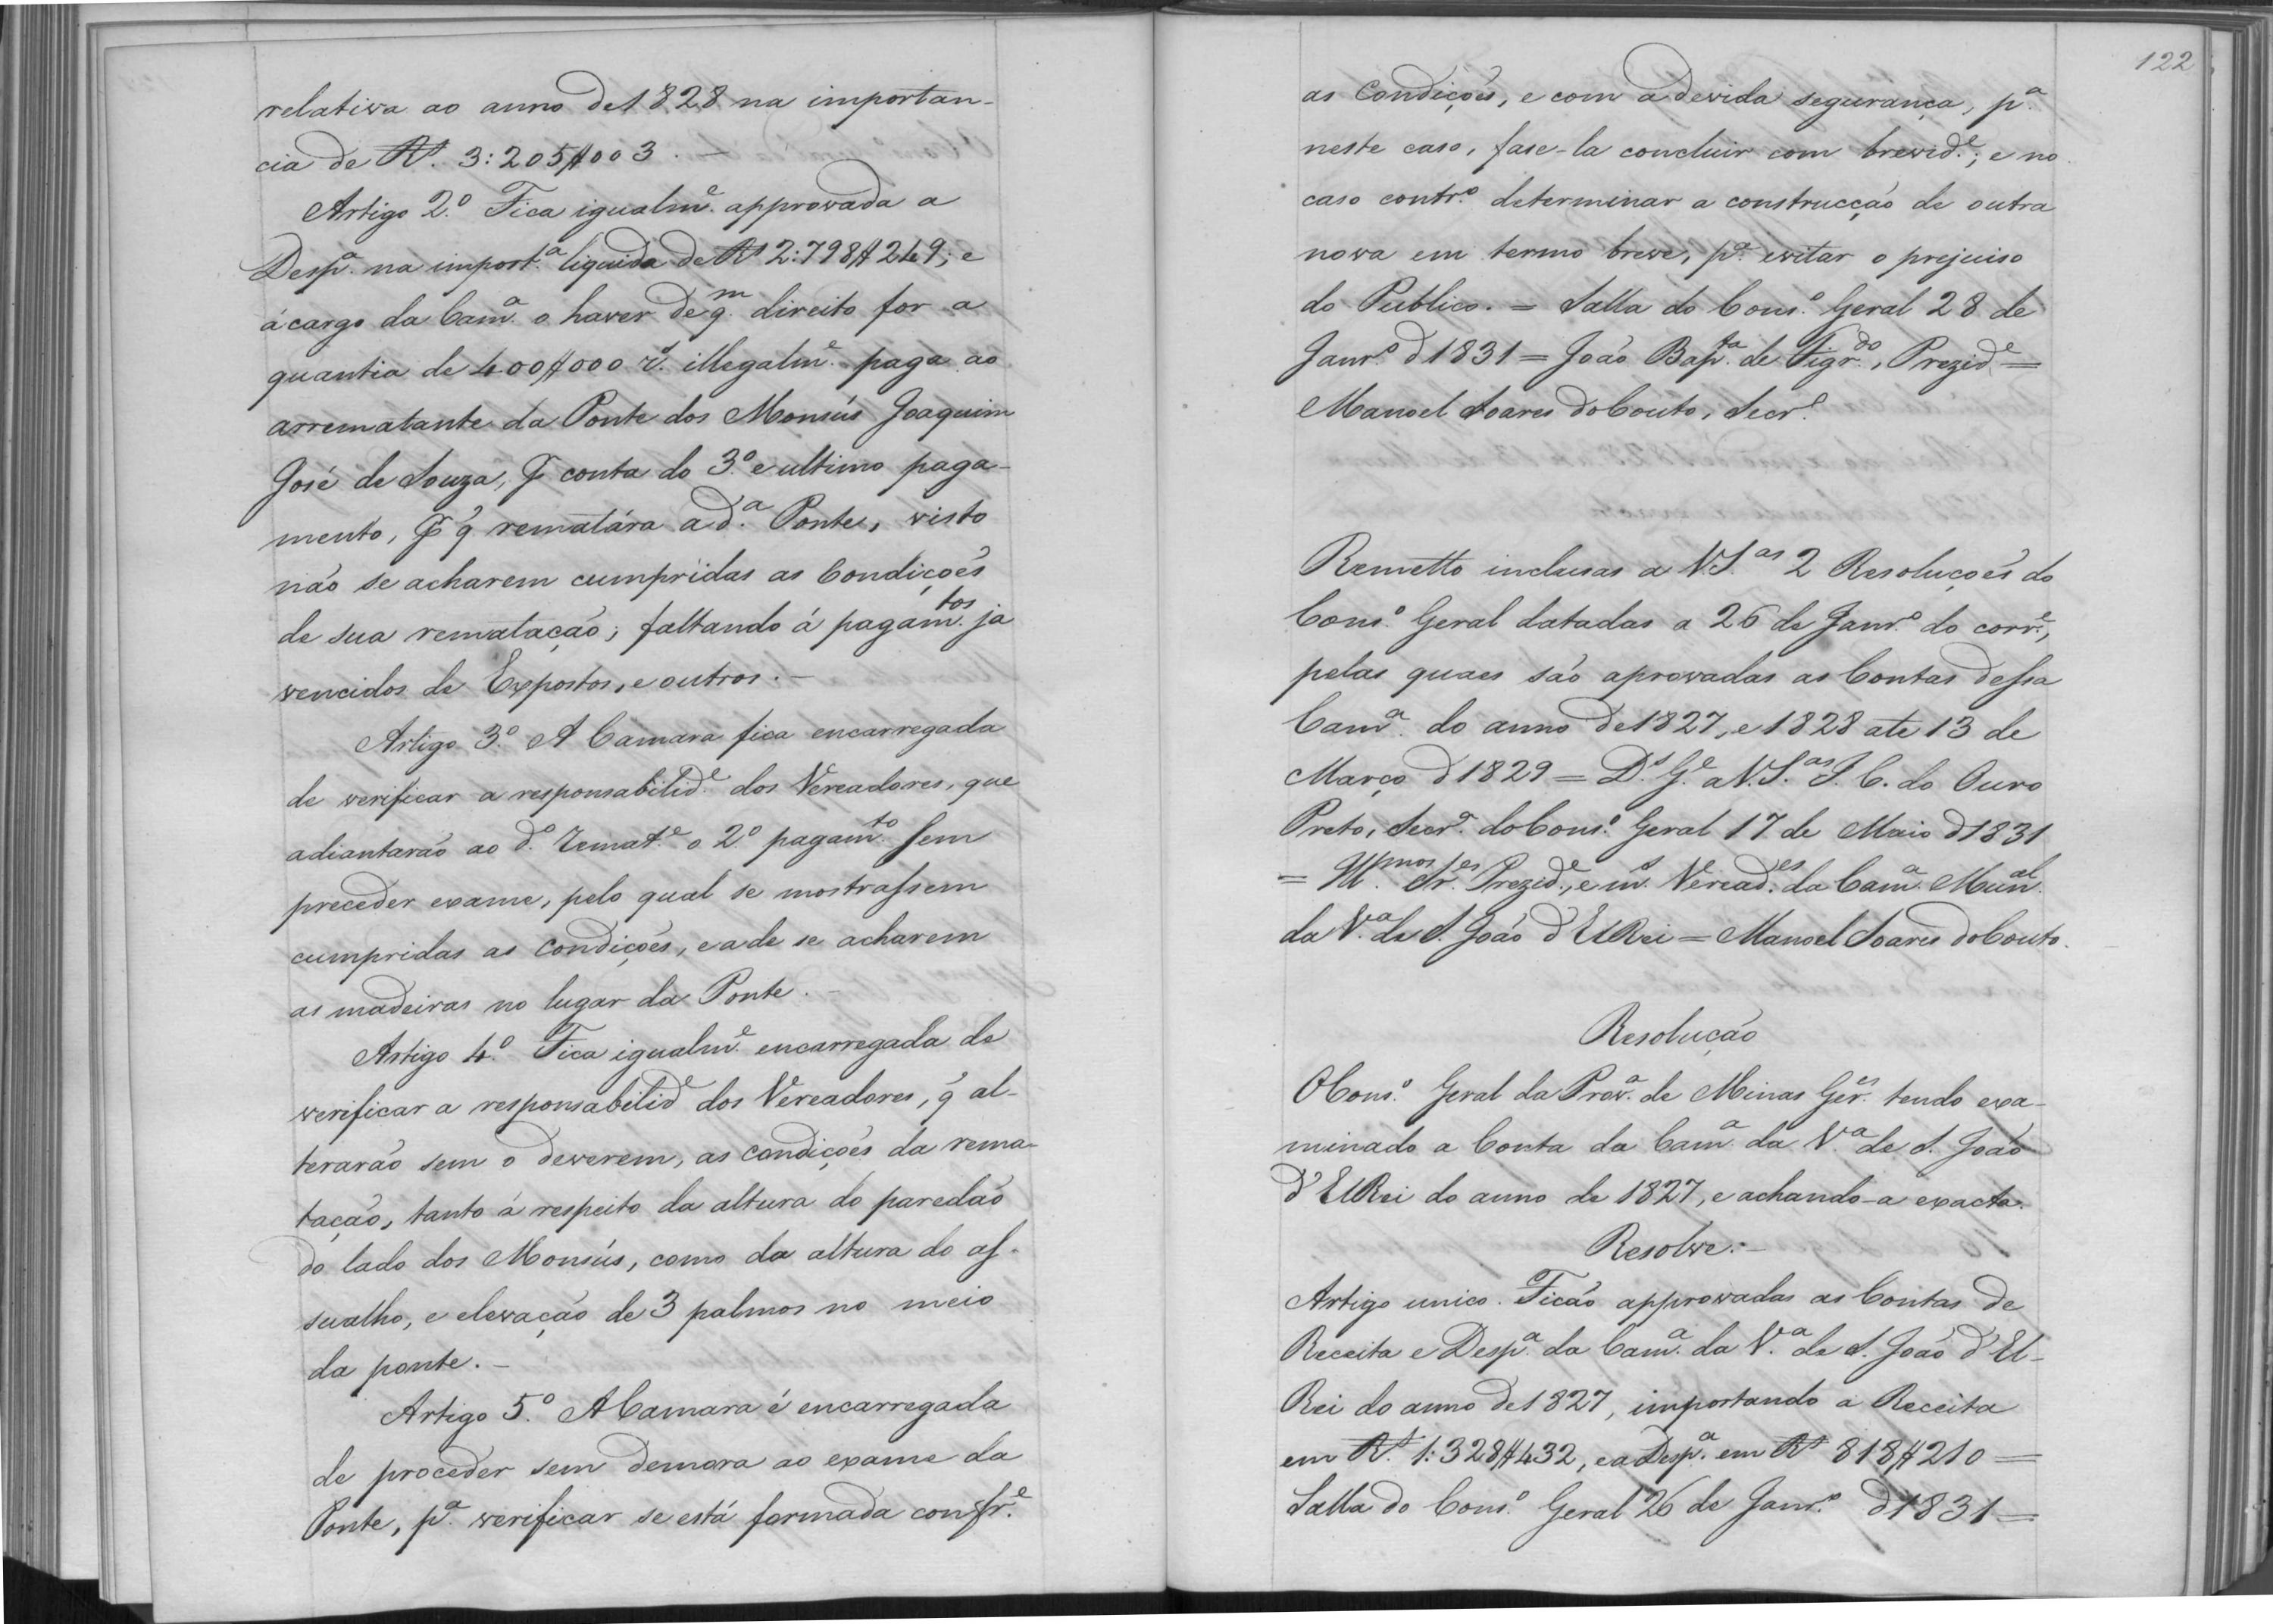 relativa ao anno de 1828 na importan-
cia de Rs. 3:205$003.-
Artigo 2.º Fica igualmᵉ. approvada a
Despª. na importª. liquida de Rs 2:798$249; e
á cargo da Camª. o haver de qᵐ. direito for a
quantia de 400$000 rˢ. illegalmᵉ. paga ao
arrematante da Ponte dos Monsús Joaquim
José de Souza, P conta do 3.º e ultimo paga-
mento, P q̃ rematára a dª. Ponte, visto
não se acharem cumpridas as Condições
de sua rematação; faltando á pagamᵗᵒˢ. ja
vencidos de Expostos, e outros.-
Artigo 3.º A Camara fica encarregada
de verificar a responsabilidᵉ. dos Vereadores, que
adiantarão ao dº. Rematᵉ. o 2º pagamᵗᵒ. sem
preceder exame, pelo qual se mostrassem
cumpridas as condições, e a de se acharem
as madeiras no lugar da Ponte.-
Artigo 4.º Fica igualmᵉ. encarregada de
verificar a responsabilidᵉ dos Vereadores, q̃ al-
terarão sem o deverem, as condições da rema-
tação, tanto á respeito da altura do paredão
do lado dos Monsús, como da altura do as-
sualho, e elevação de 3 palmos no meio
da ponte.-
Artigo 5.º A Camara é encarregada
de proceder sem demora ao exame da
Ponte, pª. verificar se está formada confrᵉ.
122
as Condições, e com a devida segurança, pª.
neste caso, fase-la concluir com brevidᵉ.; e no
caso contrº. determinar a construcção de outra
nova em termo breve, pª. evitar o prejuiso
do Publico. = Salla do Consº. Geral 28 de
Janrº. d 1831 = João Bapᵗª. de Figrᵈᵒ., Prezidᵉ. =
Manoel Soares do Couto, Secrº.
Remetto inclusas a V.S.ᵃˢ 2 Resoluções do
Consº. Geral datadas a 26 de Janrº. do corrᵉ.,
pelas quaes são aprovadas as Contas dessa
Camª. do anno de 1827, e 1828 ate 13 de
Março d 1829 = Dˢ. Gᵉ. a V.S.ᵃˢ I. C. do Ouro
Preto, Secrª. do Consº. Geral 17 de Maio d 1831
= Illᵐᵒˢ. Srᵉˢ. Prezidᵉ., e mˢ. Vereadᵉˢ. da Camª. Munᵃˡ.
da Vª. de S. João d'El Rei = Manoel Soares do Couto.
Resolução
O Consº. Geral da Provª. de Minas Gerᵉˢ. tendo exa-
minado a Conta da Camª. da Vª. de S. João
d'El Rei do anno de 1827, e achando-a exacta.
Resolve:-
Artigo unico. Ficão approvadas as Contas de
Receita e Despª. da Camª. da Vª. de S. João d'El-
Rei do anno de 1827, importando a Receita
em Rs. 1:328$432, e a Despª. em Rs 818$210 =
Salla do Consº. Geral 26 de Janrº. d 1831 =